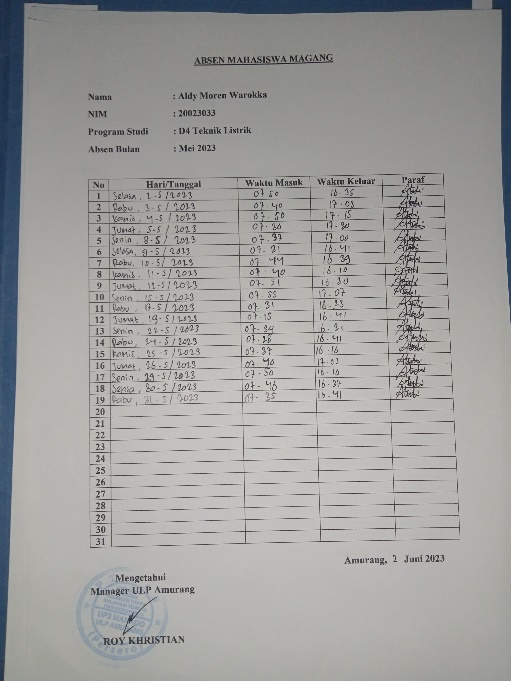 ABSEN MAHASISWA MAGANG
Nama : Aldy Moren Warokka
NIM : 20023033
Program Studi : D4 Teknik Listrik
Absen Bulan : Mei 2023
No Hari/Tanggal Waktu Masuk Waktu Keluar Paraf
1 Selasa, 2-5/2023 07.50 16.35
2 Rabu, 3-5/2023 07.40 17.03
3 Kamis, 4-5/2023 07.50 17.15
4 Jumat, 5-5/2023 07.30 17.30
5 Senin, 8-5/2023 07.33 17.00
6 Selasa, 9-5/2023 07.31 16.41
7 Rabu, 10-5/2023 07.44 16.39
8 Kamis, 11-5/2023 07.40 16.10
9 Jumat, 12-5/2023 07.51 16.30
10 Senin, 15-5/2023 07.35 17.07
11 Rabu, 17-5/2023 07.31 16.33
12 Jumat, 19-5/2023 07.15 16.41
13 Senin, 22-5/2023 07.34
14 Rabu, 24-5/2023 07.26 16.41
15 Kamis, 25-5/2023 07.37 16.16
16 Jumat, 26-5/2023 07.40 17.03
17 Senin, 29-5/2023 07.30 16.10
18 30-5/2023 07.46 16.37
19 Rabu, 31-5/2023 07.35 16.41
20
21
22
23
24
25
26
27
28
29
30
31
Amurang, 2 Juni 2023
Mengetahui
Manager ULP Amurang
ROY KHRISTIAN